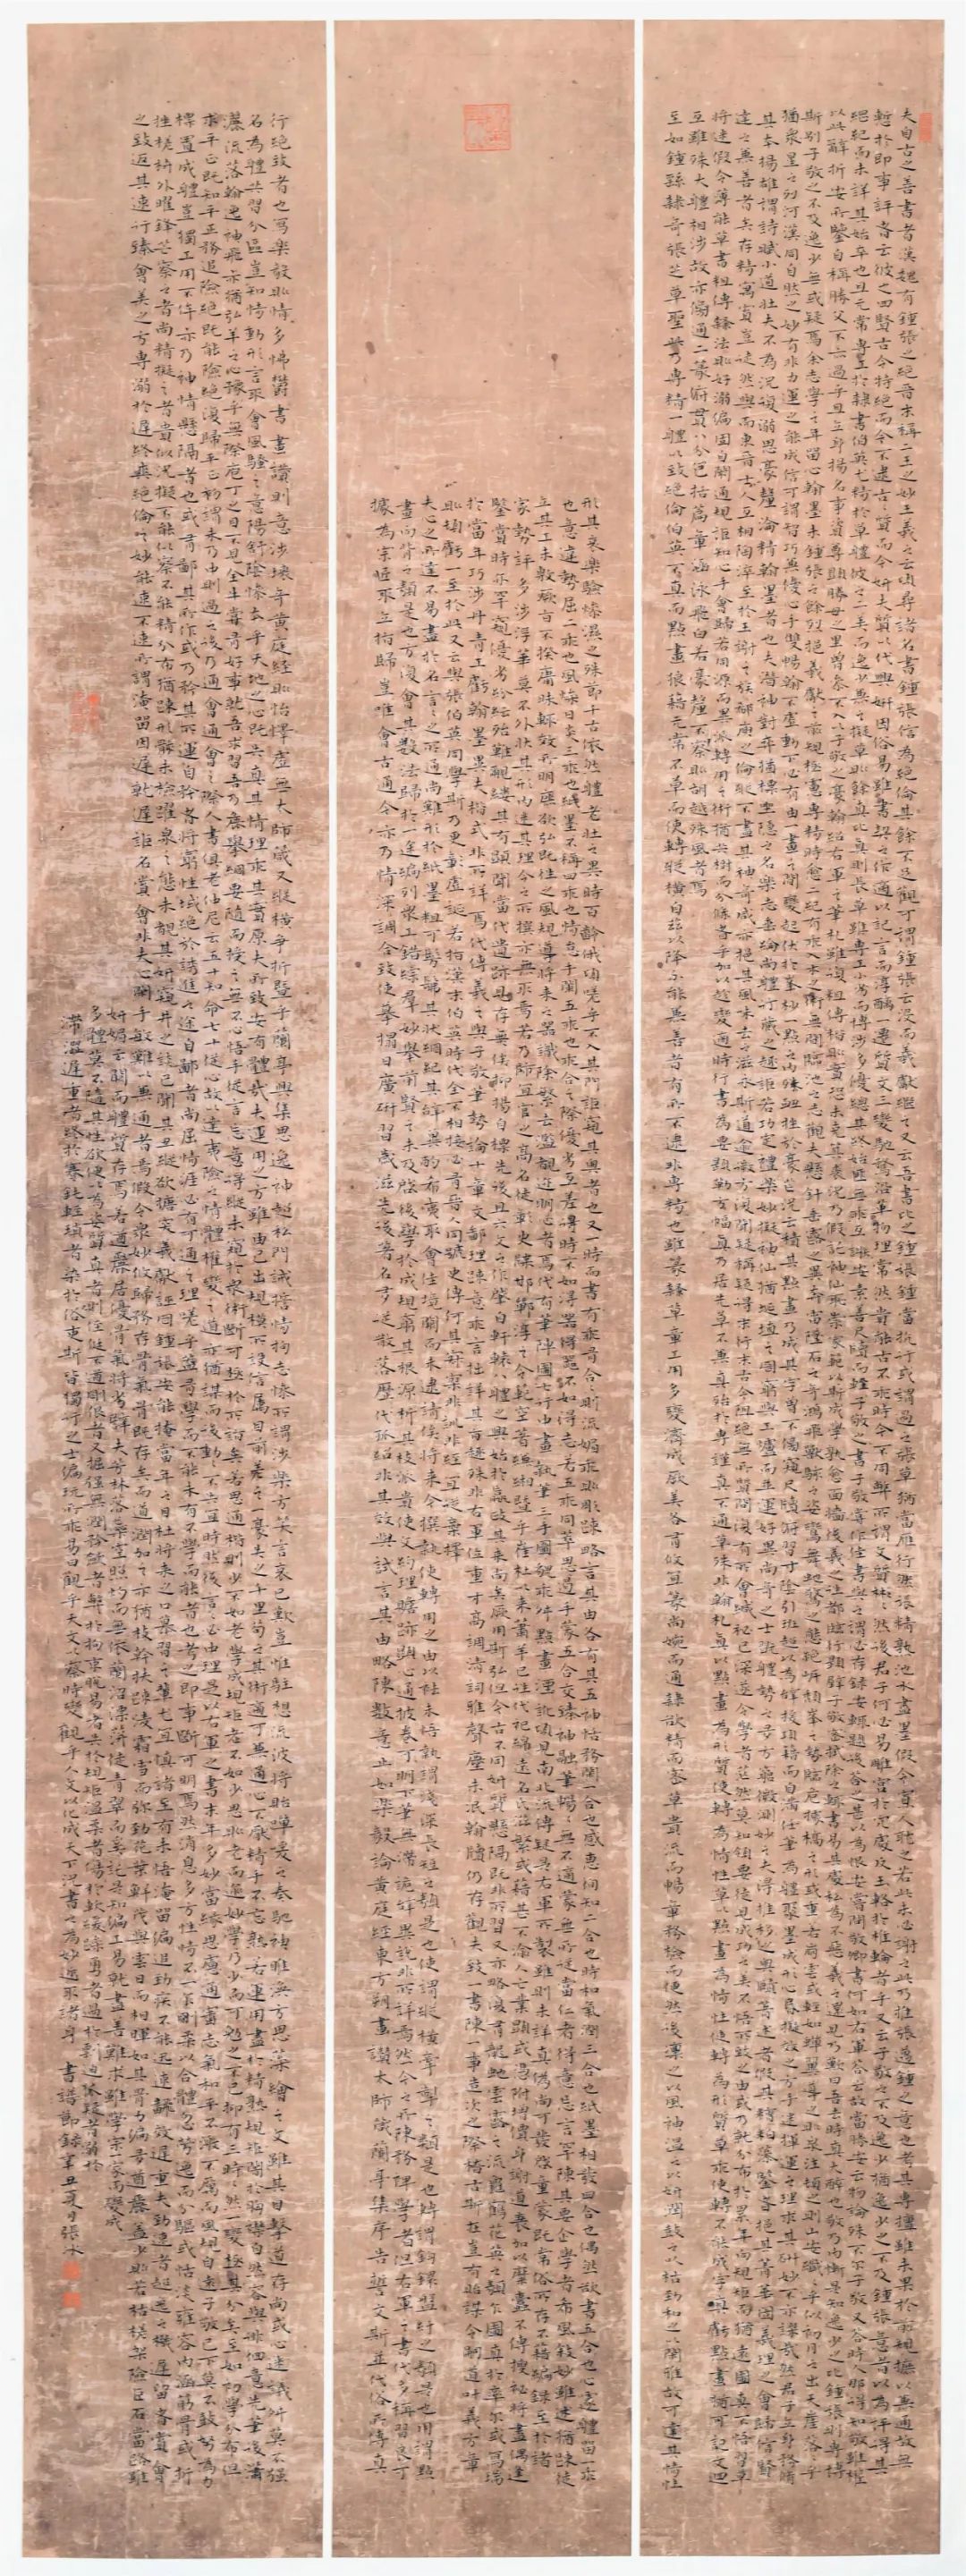 夫自古之善書者漢魏有鍾張之絕晉末稱二王之妙王羲之云頃尋諸名書鍾張信為絕倫其餘不足觀可謂鍾張云沒而羲獻繼之又云吾書比之鍾張鍾當抗行或謂過之張草猶當雁行然張精熟池水盡墨假令寡人耽之若此未必謝之此乃推張邁鍾之意也考其專擅雖未果於前規摭以兼通故無
慙於即事評者云彼之四賢古今特絕而今不逮古古質而今妍夫質以代興妍因俗易雖書契之作適以記言而淳醨一遷質文三變馳騖沿革物理常然貴能古不乖時今不同弊所謂文質彬彬然後君子何必易雕宮於穴處反玉輅於椎輪者乎又云子敬之不及逸少猶逸少之不及鍾張意者以為評得其
綱紀而未詳其始卒也且元常專工於隸書伯英尤精於草體彼之二美而逸少兼之擬草則餘真比真則長草雖專工小劣而博涉多優總其終始匪無乖互謝安素善尺牘而輕子敬之書子敬嘗作佳書與之謂必存錄安輒題後答之甚以為恨安嘗問敬卿書何如右軍答云故當勝安云物論殊不爾子敬又答時人那得知敬雖權
以此辭折安所鑒自稱勝父不亦過乎且立身揚名事資尊顯勝母之里曾參不入以子敬之豪翰紹右軍之筆札雖復粗傳楷則實恐未克箕裘況乃假託神仙恥崇家範以斯成學孰愈面牆後羲之往都臨行題壁子敬密拭除之輒書易其處私為不惡羲之還見乃歎曰吾去時真大醉也敬乃內慚是知逸少之比鍾張則專博
斯別子敬之不及逸少無或疑焉余志學之年留心翰墨味鍾張之餘烈挹羲獻之前規極慮專精時逾二紀有乖入木之術無間臨池之志觀夫懸針垂露之異奔雷墜石之奇鴻飛獸駭之姿鸞舞蛇驚之態絕岸頹峰之勢臨危據槁之形或重若崩雲或輕如蟬翼導之則泉注頓之則山安纖纖乎似初月之出天崖落落乎
猶眾星之列河漢同自然之妙有非力運之能成信可謂智巧兼優心手雙暢翰不虛動下必有由一畫之間變起伏於峰杪一點之內殊衄挫於豪芒況云積其點畫乃成其字曾不傍窺尺牘俯習寸陰引班超以為辭援項籍而自滿任筆為體聚墨成形心昏擬效之方手迷揮運之理求其妍妙不亦謬哉然君子立身務脩
其本揚雄謂詩賦小道壯夫不為況復溺思豪釐淪精翰墨者也夫潛神對弈猶標坐隱之名樂志垂綸尚體行藏之趣詎若功定禮樂妙擬神仙猶埏埴之罔窮與工鑪而並運好異尚奇之士翫體勢之多方窮微測妙之夫得推移之奧賾著述者假其糟粕藻鑒者挹其菁華固義理之會歸信賢
達之兼善者矣存精寓賞豈徒然與而東晉士人互相陶淬至於王謝之族郗庾之倫縱不盡其神奇咸亦挹其風味去之滋永斯道逾微方復聞疑稱疑得末行末古今阻絕無所質問設有所會緘秘已深遂令學者茫然莫知領要徒見成功之美不悟所致之由或乃就分布於累年向規矩而猶遠圖真不悟習草
將迷假令薄能草書粗傳隸法則好溺偏固自閡通規詎知心手會歸若同源而異派轉用之術猶共樹而分條者乎加以趨變適時行書為要題勒方幅真乃居先草不兼真殆於專謹真不通草殊非翰札真以點畫為形質使轉為情性草以點畫為情性使轉為形質草乖使轉不能成字真虧點畫猶可記文迴
互雖殊大體相涉故亦傍通二篆俯貫八分包括篇章涵泳飛白若豪釐不察則胡越殊風者焉
至如鍾繇隸奇張芝草聖此乃專精一體以致絕倫伯英不真而點畫狼藉元常不草而使轉縱橫自茲以降不能兼善者有所不逮非專精也雖篆隸草章工用多變濟成厥美各有攸宜篆尚婉而通隸欲精而密草貴流而暢章務檢而便然後凜之以風神溫之以妍潤鼓之以枯勁和之以閑雅故可達其情性
形其哀樂驗燥濕之殊節千古依然體老壯之異時百齡俄頃嗟乎不入其門詎窺其奧者也又一時而書有乖有合合則流媚乖則彫疎略言其由各有其五神怡務閑一合也感惠徇知二合也時和氣潤三合也紙墨相發四合也偶然欲書五合也心遽體留一乖
也意違勢屈二乖也風燥日炎三乖也紙墨不稱四乖也情怠手闌五乖也乖合之際優劣互差得時不如得器得器不如得志若五乖同萃思遏手蒙五合交臻神融筆暢暢無不適蒙無所從當仁者得意忘言罕陳其要企學者希風敘妙雖述猶疎徒
立其工未敷厥旨不揆庸昧輒效所明庶欲弘既往之風規導將來之器識除繁去濫覩迹明心者焉代有筆陣圖七行中畫執筆三手圖貌乖舛點畫湮訛頃見南北流傳疑是右軍所製雖則未詳真偽尚可發啟童蒙既常俗所存不藉編錄至於諸
家勢評多涉浮華莫不外狀其形內迷其理今之所撰亦無取焉若乃師宜官之高名徒彰史牒邯鄲淳之令範空著縑緗暨乎崔杜以來蕭羊已往代祀緜遠名氏滋繁或藉甚不渝人亡業顯或憑附增價身謝道衰加以糜蠹不傳搜秘將盡偶逢
鑒賞時亦罕窺優劣紛紜殆難覼縷其有顯聞當代遺跡見存無俟抑揚自標先後且六文之作肇自軒轅八體之興始於嬴政其來尚矣厥用斯弘但今古不同妍質懸隔既非所習又亦略諸復有龍蛇雲露之流龜鶴花英之類乍圖真於率爾或寫瑞
於當年巧涉丹青工虧翰墨異夫楷式非所詳焉代傳羲之與子敬筆勢論十章文鄙理疎意乖言拙詳其旨趣殊非右軍且右軍位重才高調清詞雅聲塵未泯翰牘仍存觀夫致一書陳一事造次之際稽古斯在豈有貽謀令嗣道叶義方章
則頓虧一至於此又云與張伯英同學斯乃更彰虛誕若指漢末伯英時代全不相接必有晉人同號史傳何其寂寥非訓非經宜從棄擇
夫心之所達不易盡於名言言之所通尚難形於紙墨粗可髣髴其狀綱紀其辭冀酌希夷取會佳境闕而未逮請俟將來今撰執使轉用之由以祛未悟執謂淺深長短之類是也使謂縱橫牽掣之類是也轉謂鉤鐶盤紆之類是也用謂點
畫向背之類是也方復會其數法歸於一途編列眾工錯綜羣妙舉前賢之未及啟後學於成規窮其根源析其枝派貴使文約理贍跡顯心通披卷可明下筆無滯詭辭異說非所詳焉然今之所陳務裨學者但右軍之書代多稱習良可
據為宗匠取立指歸豈唯會古通今亦乃情深調合致使摹搨日廣研習歲滋先後著名多從散落歷代孤紹非其效與試言其由略陳數意止如樂毅論黃庭經東方朔畫讚太師箴蘭亭集序告誓文斯並代俗所傳真
行絕致者也寫樂毅則情多怫鬱書畫讚則意涉瓌奇黃庭經則怡懌虛無太師箴又縱橫爭折暨乎蘭亭興集思逸神超私門誡誓情拘志慘所謂涉樂方笑言哀已歎豈惟駐想流波將貽嘽喛之奏馳神睢渙方思藻繪之文雖其目擊道存尚或心迷議舛莫不強
名為體共習分區豈知情動形言取會風騷之意陽舒陰慘本乎天地之心既失其情理乖其實原夫所致安有體哉夫運用之方雖由己出規模所設信屬目前差之一豪失之千里苟知其術適可兼通心不厭精手不忘熟若運用盡於精熟規矩闇於胸襟自然容與徘徊意先筆後瀟
灑流落翰逸神飛亦猶弘羊之心豫乎無際庖丁之目不見全牛嘗有好事就吾求習吾乃麤舉綱要隨而授之無不心悟手從言忘意得縱未窮於眾術斷可極於所詣矣若思通楷則少不如老學成規矩老不如少思則老而逾妙學乃少而可勉勉之不已抑有三時時然一變極其分矣至如初學分布但
求平正既知平正務追險絕既能險絕復歸平正初謂未及中則過之後乃通會通會之際人書俱老仲尼云五十知命七十從心故以達夷險之情體權變之道亦猶謀而後動動不失宜時然後言言必中理矣是以右軍之書末年多妙當緣思慮通審志氣和平不激不厲而風規自遠子敬已下莫不鼓努為力
標置成體豈獨工用不侔亦乃神情懸隔者也或有鄙其所作或乃矜其所運自矜者將窮性域絕於誘進之途自鄙者尚屈情涯必有可通之理嗟乎蓋有學而不能未有不學而能者也考之即事斷可明焉然消息多方性情不一乍剛柔以合體忽勞逸而分驅或恬淡雍容內涵筋骨或折
挫槎枿外曜鋒芒察之者尚精擬之者貴似況擬不能似察不能精分布猶疎形骸未檢躍泉之態未覩其妍窺井之談已聞其醜縱欲搪突羲獻誣罔鍾張安能掩當年之目杜將來之口慕習之輩尤宜慎諸至有未悟淹留偏追勁疾不能迅速翻效遲重夫勁速者超逸之機遲留者賞會
之致返其速行臻會美之方專溺於遲終爽絕倫之妙能速不速所謂淹留因遲就遲詎名賞會非夫心閑手敏難以兼通者焉假令眾妙攸歸務存骨氣骨既存矣而遒潤加之亦猶枝幹扶疎凌霜雪而彌勁花葉鮮茂與雲日而相暉如其骨力偏多遒麗蓋少則若枯槎架險巨石當路雖
妍媚云闕而體質存焉若遒麗居優骨氣將劣譬夫芳林落蕊空照灼而無依蘭沼漂蓱徒青翠而奚託是知偏工易就盡善難求雖學宗一家而變成
多體莫不隨其性欲便以為姿質直者則徑侹不遒剛佷者又掘強無潤矜斂者弊於拘束脫易者失於規矩溫柔者傷於軟緩躁勇者過於剽迫狐疑者溺於
滯澀遲重者終於蹇鈍輕瑣者染於俗吏斯皆獨行之士偏玩所乖易曰觀乎天文以察時變觀乎人文以化成天下況書之為妙近取諸身 書譜節錄辛丑夏月張